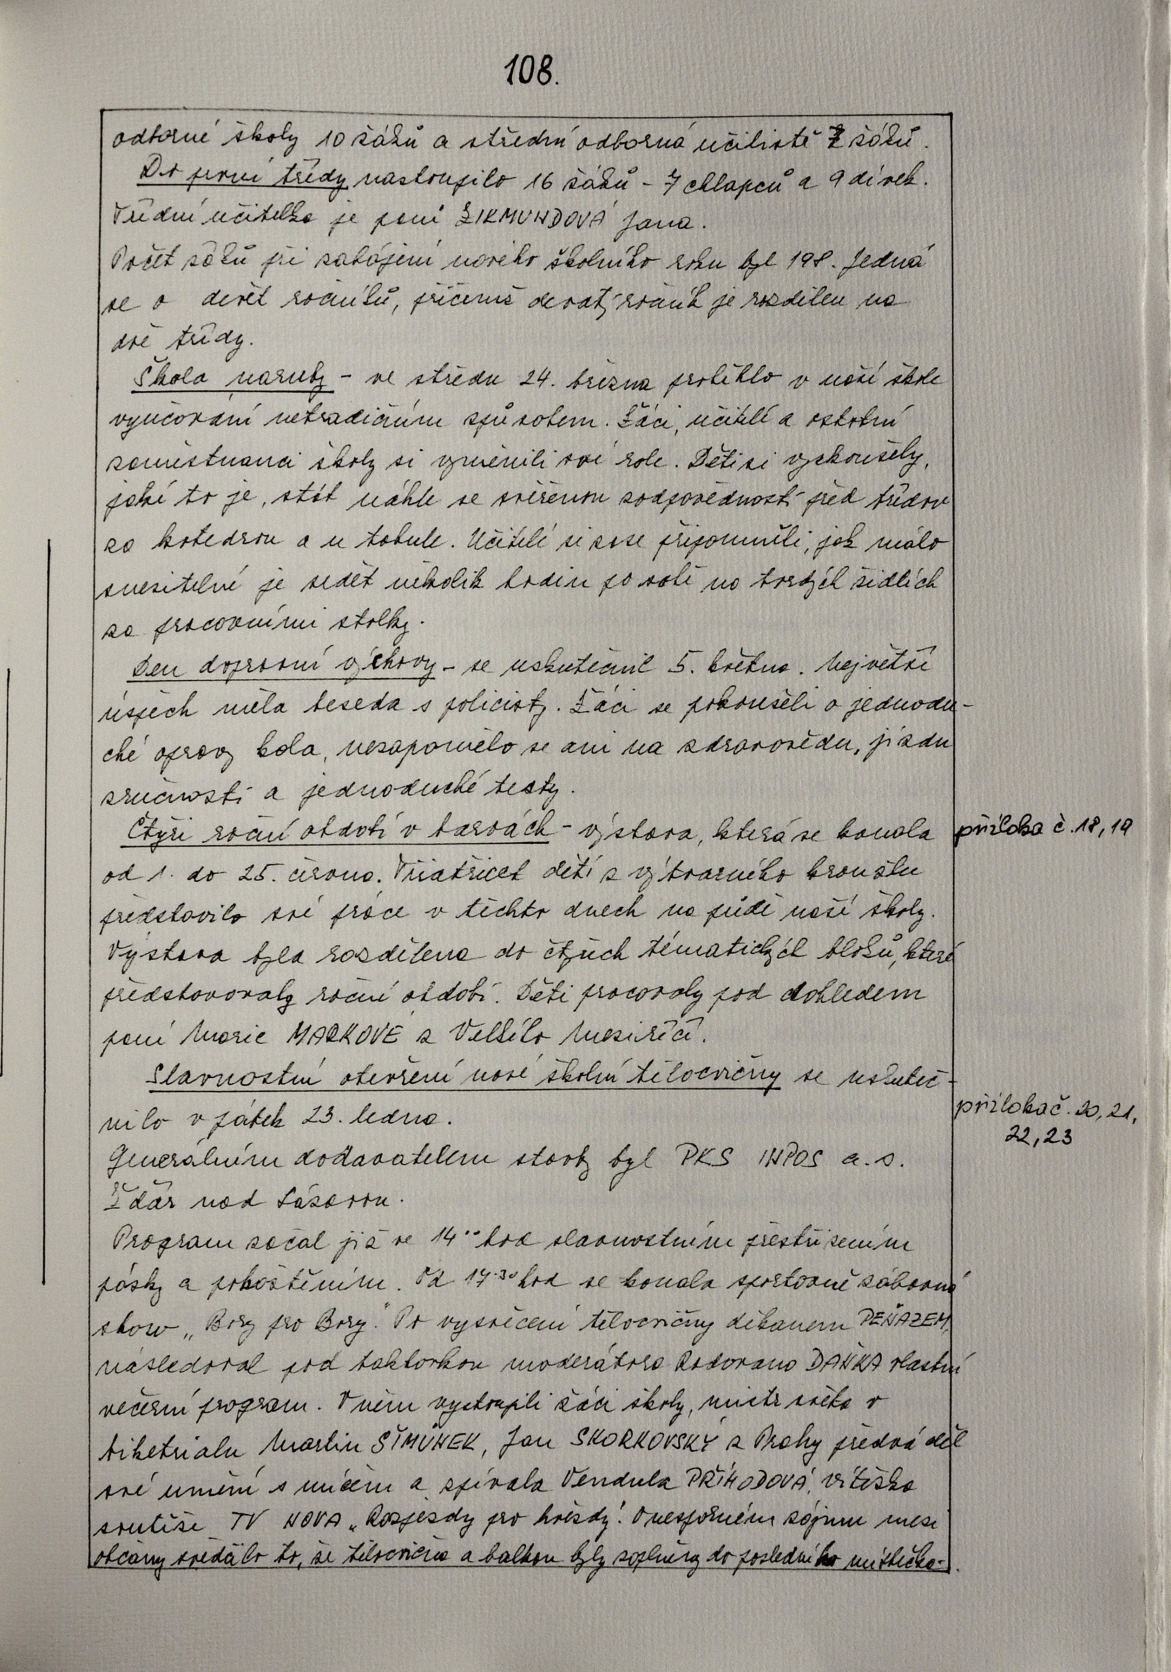 108.
odborné školy 10 žáků a střední odborná učiliště 7 žáků.
Do první třídy nastoupilo 16 žáků - 7 chlapců a 9 dívek.
Třídní učitelka je paní ZIKMUNDOVÁ Jana.
Počet žáků při zahájení nového školního roku byl 198. Jedná
se o devět ročníků, přičemž devátý ročník je rozdělen na
dvě třídy.
Škola naruby - ve středu 24. března proběhlo v naší škole
vyučování netradičním způsobem. Žáci, učitelé a ostatní
zaměstnanci školy si vyměnili své role. Děti si vyzkoušely,
jaké to je, stát náhle se svěřenou zodpovědností před třídou
za katedrou a u tabule. Učitelé si zase připomněli, jak málo
snesitelné je sedět několik hodin po sobě na tvrdých židlích
za pracovními stolky.
Den dopravní výchovy - se uskutečnil 5. května. Největší
úspěch měla beseda s policisty. Žáci se pokoušeli o jednodu-
ché opravy kola, nezapomělo se ani na zdravovědu, jízdu
zručnosti a jednoduché testy.
Čtyři roční období v barvách - výstava, která se konala
příloha č. 18, 19
od 1. do 25. června. Třiatřicet dětí z výtvarného kroužku
představilo své práce v těchto dnech na půdě naší školy.
Výstava byla rozdělena do čtyřech tématických bloků, které
představovaly roční období. Děti pracovaly pod dohledem
paní Marie MARKOVÉ z Velkého Meziříčí.
Slavnostní otevření nové školní tělocvičny se uskuteč-
nilo v pátek 23. ledna.
příloha č. 20, 21,
22, 23
Generálním dodavatelem stavby byl PKS INPOS a.s.
Žďár nad Sázavou.
Program začal již ve 14.00 hod slavnostním přestřižením
pásky a pokřtěním. Od 17.30 hod se konala sportovně zábavná
show „Bory pro Bory." Po vysvěcení tělocvičny děkanem PEŇÁZEM,
následoval pod taktovkou moderátora Radovana DAŇKA vlastní
večerní program. V něm vystoupili žáci školy, mistr světa v
biketrialu Martin ŠIMŮNEK, Jan SKORKOVSKÝ z Prahy předváděl
své umění s míčem a zpívala Vendula PŘÍHODOVÁ, vítězka
soutěže TV NOVA „Rozjezdy pro hvězdy". O nesporném zájmu mezi
občany svědčilo to, že tělocvična a balkon byly zaplněny do posledního místečka.